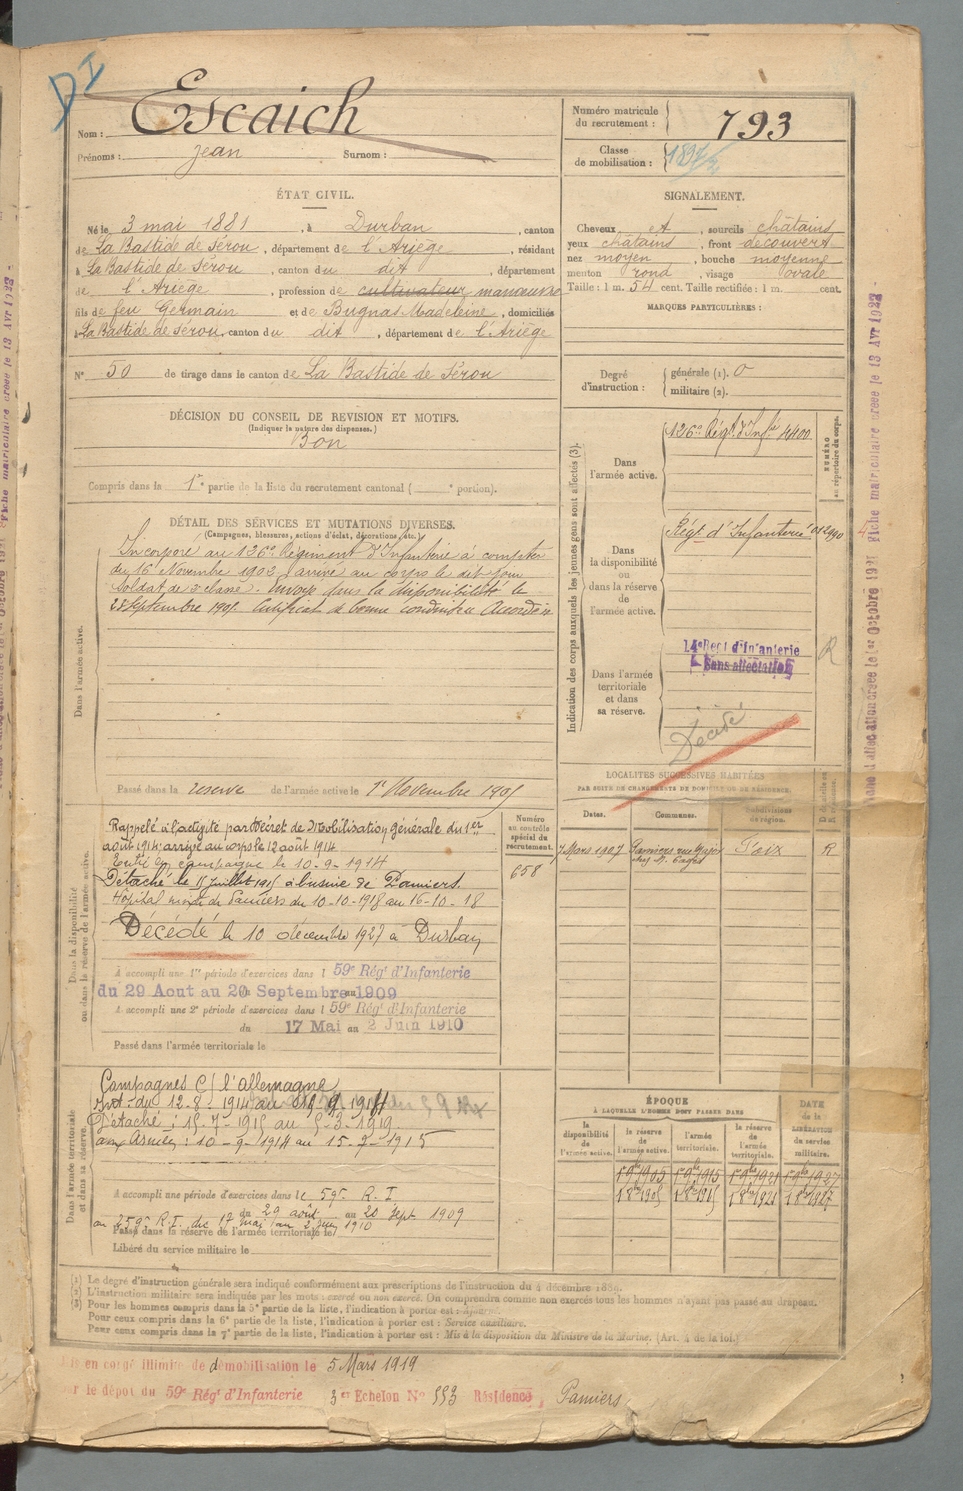 DI
Nom : Escaich
Prénoms : Jean Surnom :
Numéro matricule du recrutement : 793
Classe de mobilisation :
ÉTAT CIVIL.
Né le 3 mai 1881, à Durban, canton
de La Bastide de Sérou, département de l'Ariège, résidant
à La Bastide de Sérou, canton du dit, département
de l'Ariège, profession de cultivateur manœuvre
fils de feu Germain et de Bugnas Madeleine, domiciliés
à La Bastide de Sérou, canton du dit, département de l'Ariège
N° 50 de tirage dans le canton de La Bastide de Sérou
SIGNALEMENT.
Cheveux et, sourcils châtains
yeux châtains, front découvert
nez moyen, bouche moyenne
menton rond, visage ovale
Taille : 1 m. 54 cent. Taille rectifiée : 1 m. cent.
MARQUES PARTICULIÈRES :
Degré d'instruction : générale (1). 0
militaire (2).
DÉCISION DU CONSEIL DE REVISION ET MOTIFS.
(Indiquer la nature des dispenses.)
Bon
Compris dans la 1re partie de la liste du recrutement cantonal ( e portion).
DÉTAIL DES SERVICES ET MUTATIONS DIVERSES.
(Campagnes, blessures, actions d'éclat, décorations, etc.)
Dans l'armée active.
Incorporé au 126e Régiment d'Infanterie à compter
du 16 Novembre 1902, arrivé au corps le dit jour
soldat de 2e classe. Envoyé dans la disponibilité le
Septembre 1905. Certificat de bonne conduite Accordé
Passé dans la réserve de l'armée active le 1er Novembre 1905
Indication des corps auxquels les jeunes gens sont affectés (3).
NUMÉRO au répertoire du corps.
Dans l'armée active.
126e Régt d'Infie 4400
Dans la disponibilité ou dans la réserve de l'armée active.
Régt d'Infanterie
Dans l'armée territoriale et dans sa réserve.
14e Regt d'Infanterie
Sans affectation
R
Décédé
LOCALITÉS SUCCESSIVES HABITÉES
PAR SUITE DE CHANGEMENTS DE DOMICILE OU DE RÉSIDENCE.
Dates. Communes. Subdivisions de région.
7 Mars 1907 Pamiers rue Foix R
Dans la disponibilité ou dans la réserve de l'armée active.
Numéro au contrôle spécial du recrutement.
658
Rappelé à l'activité par Décret de Mobilisation Générale du 1er
août 1914; arrivé au corps le 12 août 1914
Parti en campagne le 10-9-1914
Détaché le 15 juillet 1915 à l'usine de Pamiers.
Hôpital mixte de Pamiers du 10-10-1918 au 16-10-18
Décédé le 10 décembre 1927 à Durban
A accompli une 1re période d'exercices dans l 59e Régt d'Infanterie
du 29 Aout au 20 Septembre 1909
A accompli une 2e période d'exercices dans l 59e Régt d'Infanterie
du 17 Mai au 2 Juin 1910
Passé dans l'armée territoriale le
Dans l'armée territoriale et dans sa réserve.
Campagnes C/ l'allemagne
Int. du 12-8-1914 au 9-9-1914
Détaché : 15-7-1915 au 5-3-1919.
aux Armées : 10-9-1914 au 15-7-1915
A accompli une période d'exercices dans le 59e R.I.
du 29 août au 20 Sept 1909
au 259e R.I. du 17 mai au 2 juin 1910
Passé dans la réserve de l'armée territoriale le
Libéré du service militaire le
ÉPOQUE
À LAQUELLE L'HOMME DOIT PASSER DANS
la disponibilité de l'armée active. la réserve de l'armée active. l'armée territoriale. la réserve de l'armée territoriale.
DATE de la LIBÉRATION du service militaire.
1 9bre 1905 1 9bre 1915 1 9bre 1921 1 9bre 1927
(1) Le degré d'instruction générale sera indiqué conformément aux prescriptions de l'instruction du 4 décembre 1889.
(2) L'instruction militaire sera indiquée par les mots : exercé ou non exercé. On comprendra comme non exercés tous les hommes n'ayant pas passé au drapeau.
(3) Pour les hommes compris dans la 5e partie de la liste, l'indication à porter est : Ajourné.
Pour ceux compris dans la 6e partie de la liste, l'indication à porter est : Service auxiliaire.
Pour ceux compris dans la 7e partie de la liste, l'indication à porter est : Mis à la disposition du Ministre de la Marine. (Art. 4 de la loi.)
en congé illimité de démobilisation le 5 Mars 1919
par le dépôt du 59e Régt d'Infanterie 3er Echelon N° 553 Résidence, Pamiers
Fiche matriculaire créée le 13 Avr 1922